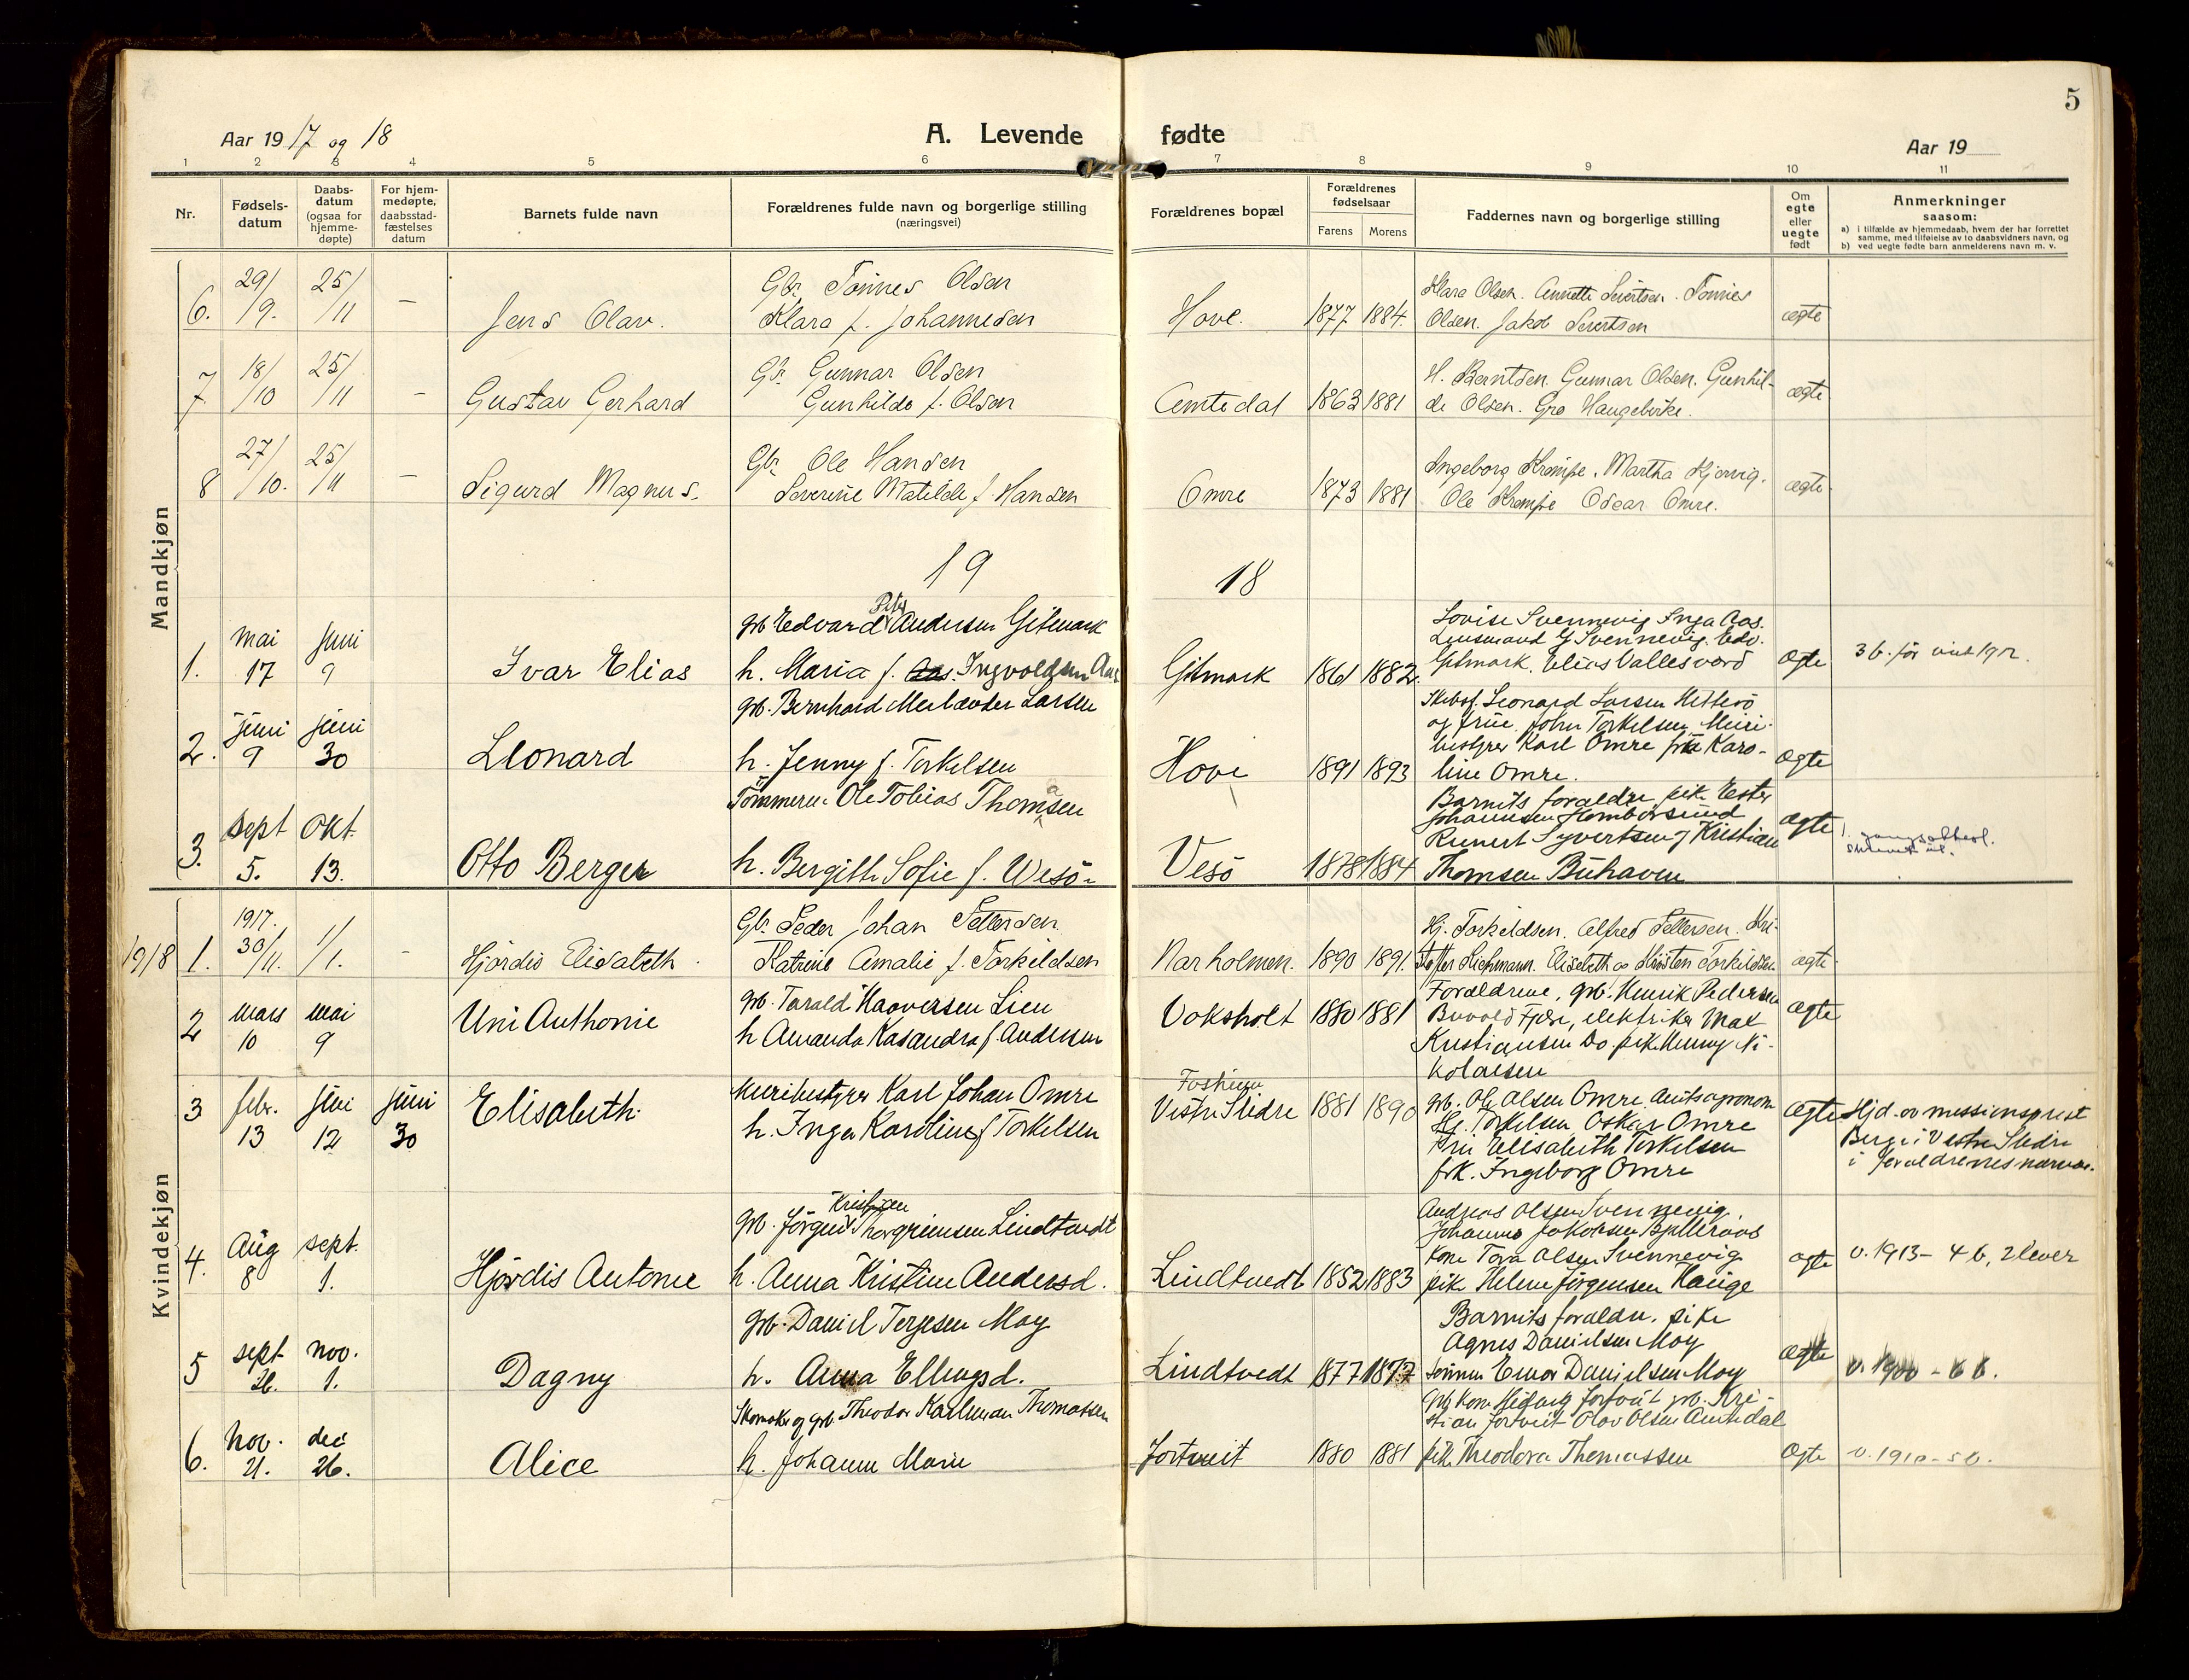 5
Aar 1917 og 18
A. Levende fødte
Aar 19
1 2 3 4 5 6 7 8 9 10 11
Nr.
Fødsels-
datum
Daabs-
datum
(ogsaa for
hjemme-
døpte)
For hjem-
medøpte,
daabsstad-
fæstelses
datum
Barnets fulde navn
Forældrenes fulde navn og borgerlige stilling
(næringsvei)
Forældrenes bopæl
Forældrenes
fødselsaar
Farens Morens
Faddernes navn og borgerlige stilling
Om
egte
eller
uegte
født
Anmerkninger
saasom:
a) i tilfælde av hjemmedaab, hvem der har forrettet
samme, med tilføielse av to daabsvidners navn, og
b) ved uegte fødte barn anmelderens navn m. v.
Mandkjøn
6. 29/9. 25/11 – Jens Olav.
Gbr. Tønnes Olsen
Klara f. Johannesen
Hove. 1877 1884.
Klara Olsen. Annette Severtsen. Tønnes
Olsen. Jakob Severtsen
ægte
7 18/10 25/11 – Gustav Gerhard
Gbr. Gunnar Olsen
Gunhilde f. Olsen
Amtedal 1863 1881
H. Berntsen. Gunnar Olsen. Gunhil-
de Olsen. Gro Haugebirke.
ægte
8 27/10. 25/11 – Sigurd Magnus.
Gbr. Ole Hansen
Severine Matilde f. Hansen
Omre 1873 1881
Ingeborg Krempe. Martha Kjorvig.
Ole Krempe Oscar Omre.
ægte
19 18
1. Mai 17 Juni 9 Ivar Elias
grb Edvard Peter Andersen Gitmark
h. Maria f. Ingvoldsen Aas
Gitmark 1861 1882.
Lovise Svennevig Inga Aas.
Lensmand G Svennevig. Edv.
Gitmark. Elias Vallesverd
ægte
3 b. før
2. juni 9 juni 30 Leonard
grb. Bernhard Merlander Larsen
h. Jenny f. Torkelsen
Hove 1891 1893
Leonard Larsen Hetterø
og frue. John Torkelsen, Meieri-
bestyrer Karl Omre frk Karo-
line Omre.
ægte
3. sept 5. Okt. 13. Otto Berger
Tømmerm. Ole Tobias Thomasen
h. Bergith Sofie f. Wesö-
Vesö 1878 1884
Barnets foraldre pik Ester
Johannesen Homborsund
Reinert Syvertsen, Kristian
Thomsen Buhaven
ægte
Kvindekjøn
1918 1. 1917. 30/11. 1/1. – Hjørdis Elisabeth.
Gbr. Peder Johan Pettersen.
Katrine Amalie f. Torkildsen
Narholmen. 1890 1891.
Hj. Torkeldsen. Alfred Pettersen. Kri-
stoffer Richmann. Elisebeth og Kirsten Torkildsen
ægte
2 mars 10 mai 9 Uni Anthonie
grb. Tarald Haaversen Lien
h Amanda Kasandra f. Andersen
Voksholt 1880 1881
Foraldrene, grb. Henrik Pedersen
Buvold Fjære, elektriker Max
Kristiansen Do. pik. Henny Ni-
kolaisen
ægte
3 febr. 13 juni 12 juni 30 Elisabeth.
Meieribestyrer Karl Johan Omre
h. Inga Karoline f Torkelsen
Vestre Slidre 1881 1890
grb. Ole Olsen Omre. Amtsagronom
Hj. Torkelsen Oskar Omre
Fru Elisabeth Torkelsen
frk. Ingeborg Omre
ægte
Hjd. av missionsprest
Berge i Vestre Slidre
i foraldrenes nærvær.
4. Aug 8 sept. 1. Hjørdis Antonie
grb. Jørgen Kristian Thorgrimsen Lindtvedt
h. Anna Kristine Andersd.
Lindtvedt 1852 1883
Andreas Olsen Svennevig.
Johannes Jakobsen Bjelleraas
kone Tora Olsen Svennevig
pike Helene Jørgensen Hauge
ægte
v. 1913 – 4 b, 2 lever
5 sept 26. nov. 1. Dagny
grb. Daniel Terjesen Moy
h. Anna Ellingsd.
Lindtvedt 1877 1877
Barnets foraldre. pike
Agnes Danielsen Moy
sønnen Einar Danielsen Moy
ægte
v. 1900 – 6 b.
6. Nov. 21. dec 26. Alice
Skomaker og grb Theodor Karlman Thomassen
h. Johanne Marie
Fortveit 1880 1881
grb kone Hedvig Fortveit grb. Kri-
stian Fortveit Olav Olsen Amtedal
pik Theodora Thomassen
ægte
v. 1910 – 5 b.